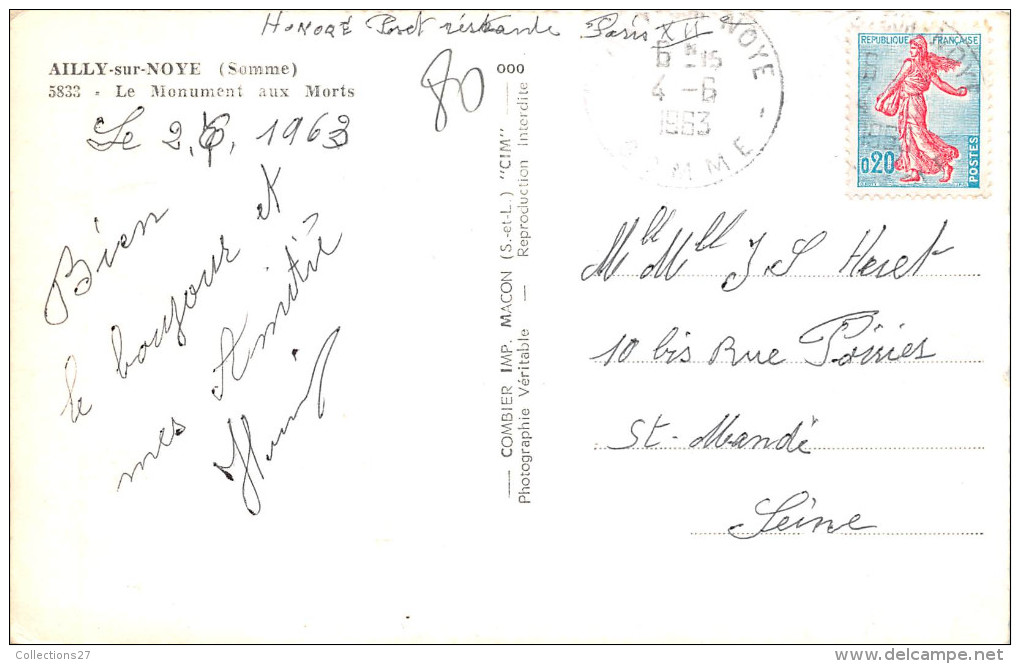 HONORÉ Post réstante Paris XII
AILLY-sur-NOYE (Somme)
5833 - Le Monument aux Morts
Le 2, 6, 1963
80
ooo
NOYE
4 -6
1963
SOMME
REPUBLIQUE FRANÇAISE
0,20
POSTES
Bien
le bonjour et
mes Amitié
— COMBIER IMP. MACON (S.-et-L.) "CIM" —
Photographie Véritable — Reproduction Interdite
Mlle J S
10 bis Rue Poiries
St-Mandé
Seine
Collections27
www.delcampe.net